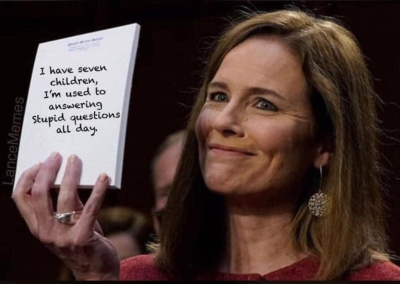 I have seven
children,
I'm used to
answering
Stupid questions
all day.
LanceMemes